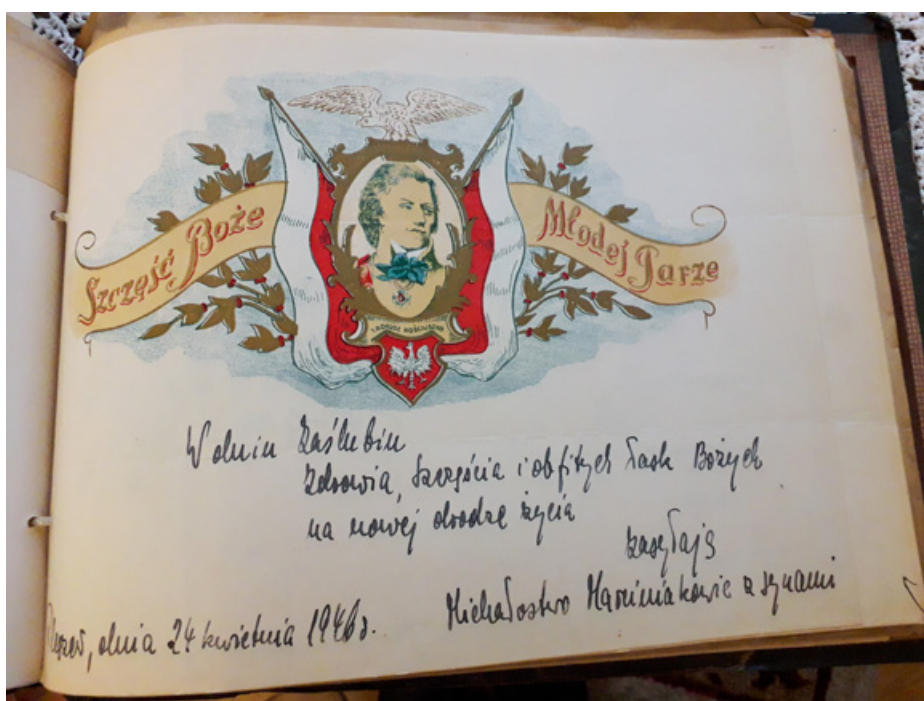 Szczęść Boże
Młodej Parze
TADEUSZ KOŚCIUSZKO
W dniu Zaślubin
Zdrowia, Szczęścia i obfitych Łask Bożych
na nowej drodze życia
zasyłają
Michałostwo Marciniakowie z synami
dnia 24 kwietnia 1946 r.